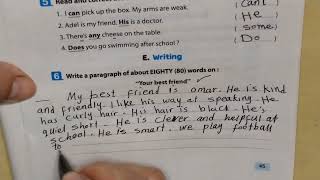 5 Read and correct
1. I can pick up the box. My arms are weak. ( can't )
2. Adel is my friend. His is a doctor. ( He )
3. There's any cheese on the table. ( some )
4. Does you go swimming after school? ( Do )
E. Writing
6 Write a paragraph of about EIGHTY (80) words on :
"Your best friend"
My best friend is omar. He is Kind
and friendly. I like his way at speaking. He
has curly hair. His hair is black. He's
quiet short. He is clever and helpful at
school. He is smart. we play football
to
45